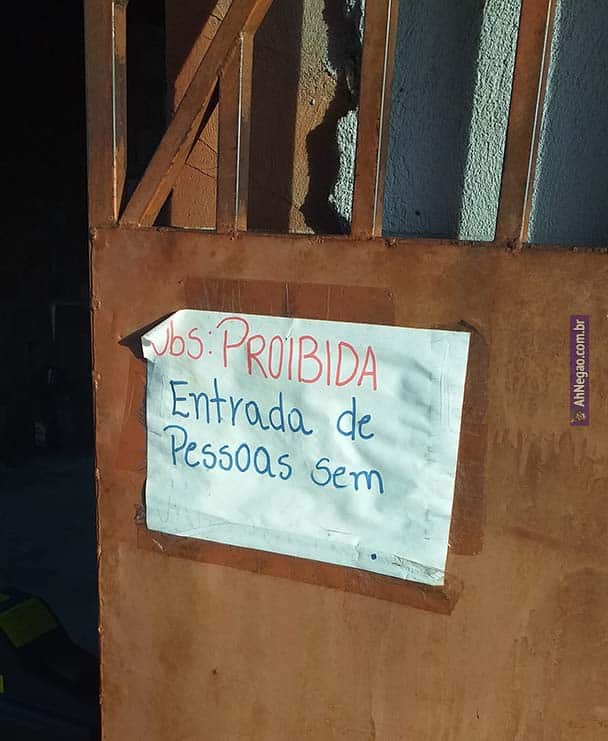 Obs: PROIBIDA
Entrada de
Pessoas sem
AhNegao.com.br